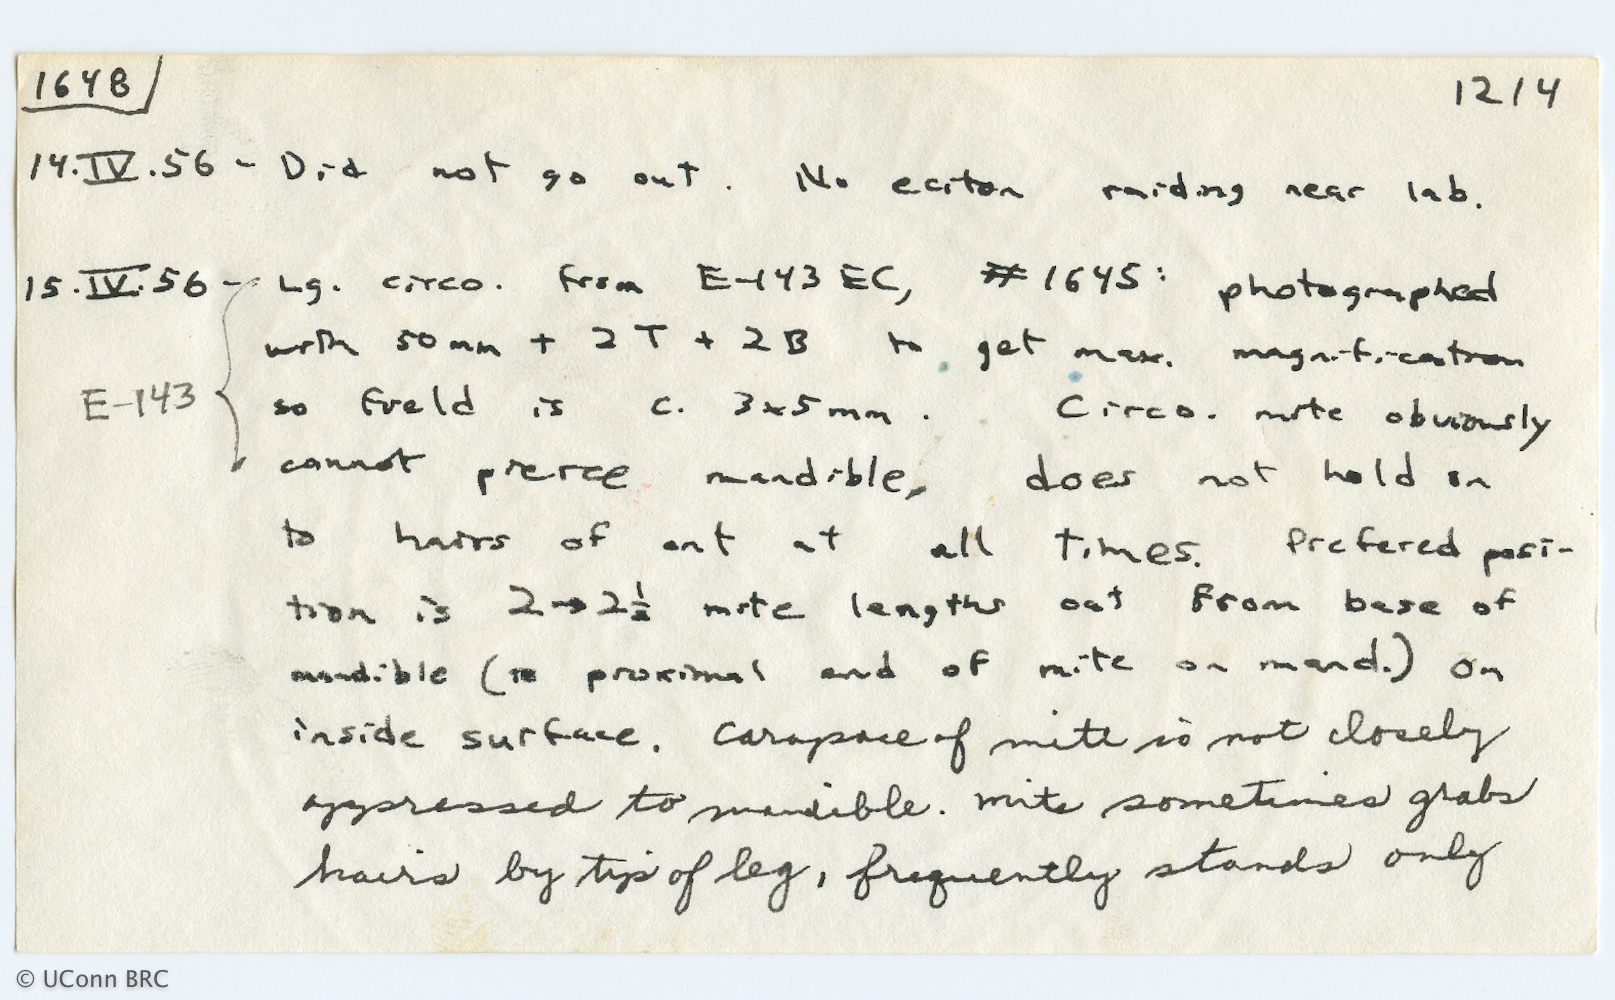 1648
1214
14.IV.56 - Did not go out. No eciton raiding near lab.
15.IV.56 - Lg. circo. from E-143 EC, #1645: photographed
with 50mm + 2T + 2B to get max. magnification
E-143
so field is c. 3x5mm. Circo. mite obviously
cannot pierce mandible, does not hold on
to hairs of ant at all times. Prefered posi-
tion is 2→2½ mite lengths out from base of
mandible (ie proximal end of mite on mand.) on
inside surface. Carapace of mite is not closely
appressed to mandible. Mite sometimes grabs
hairs by tip of leg, frequently stands only
© UConn BRC